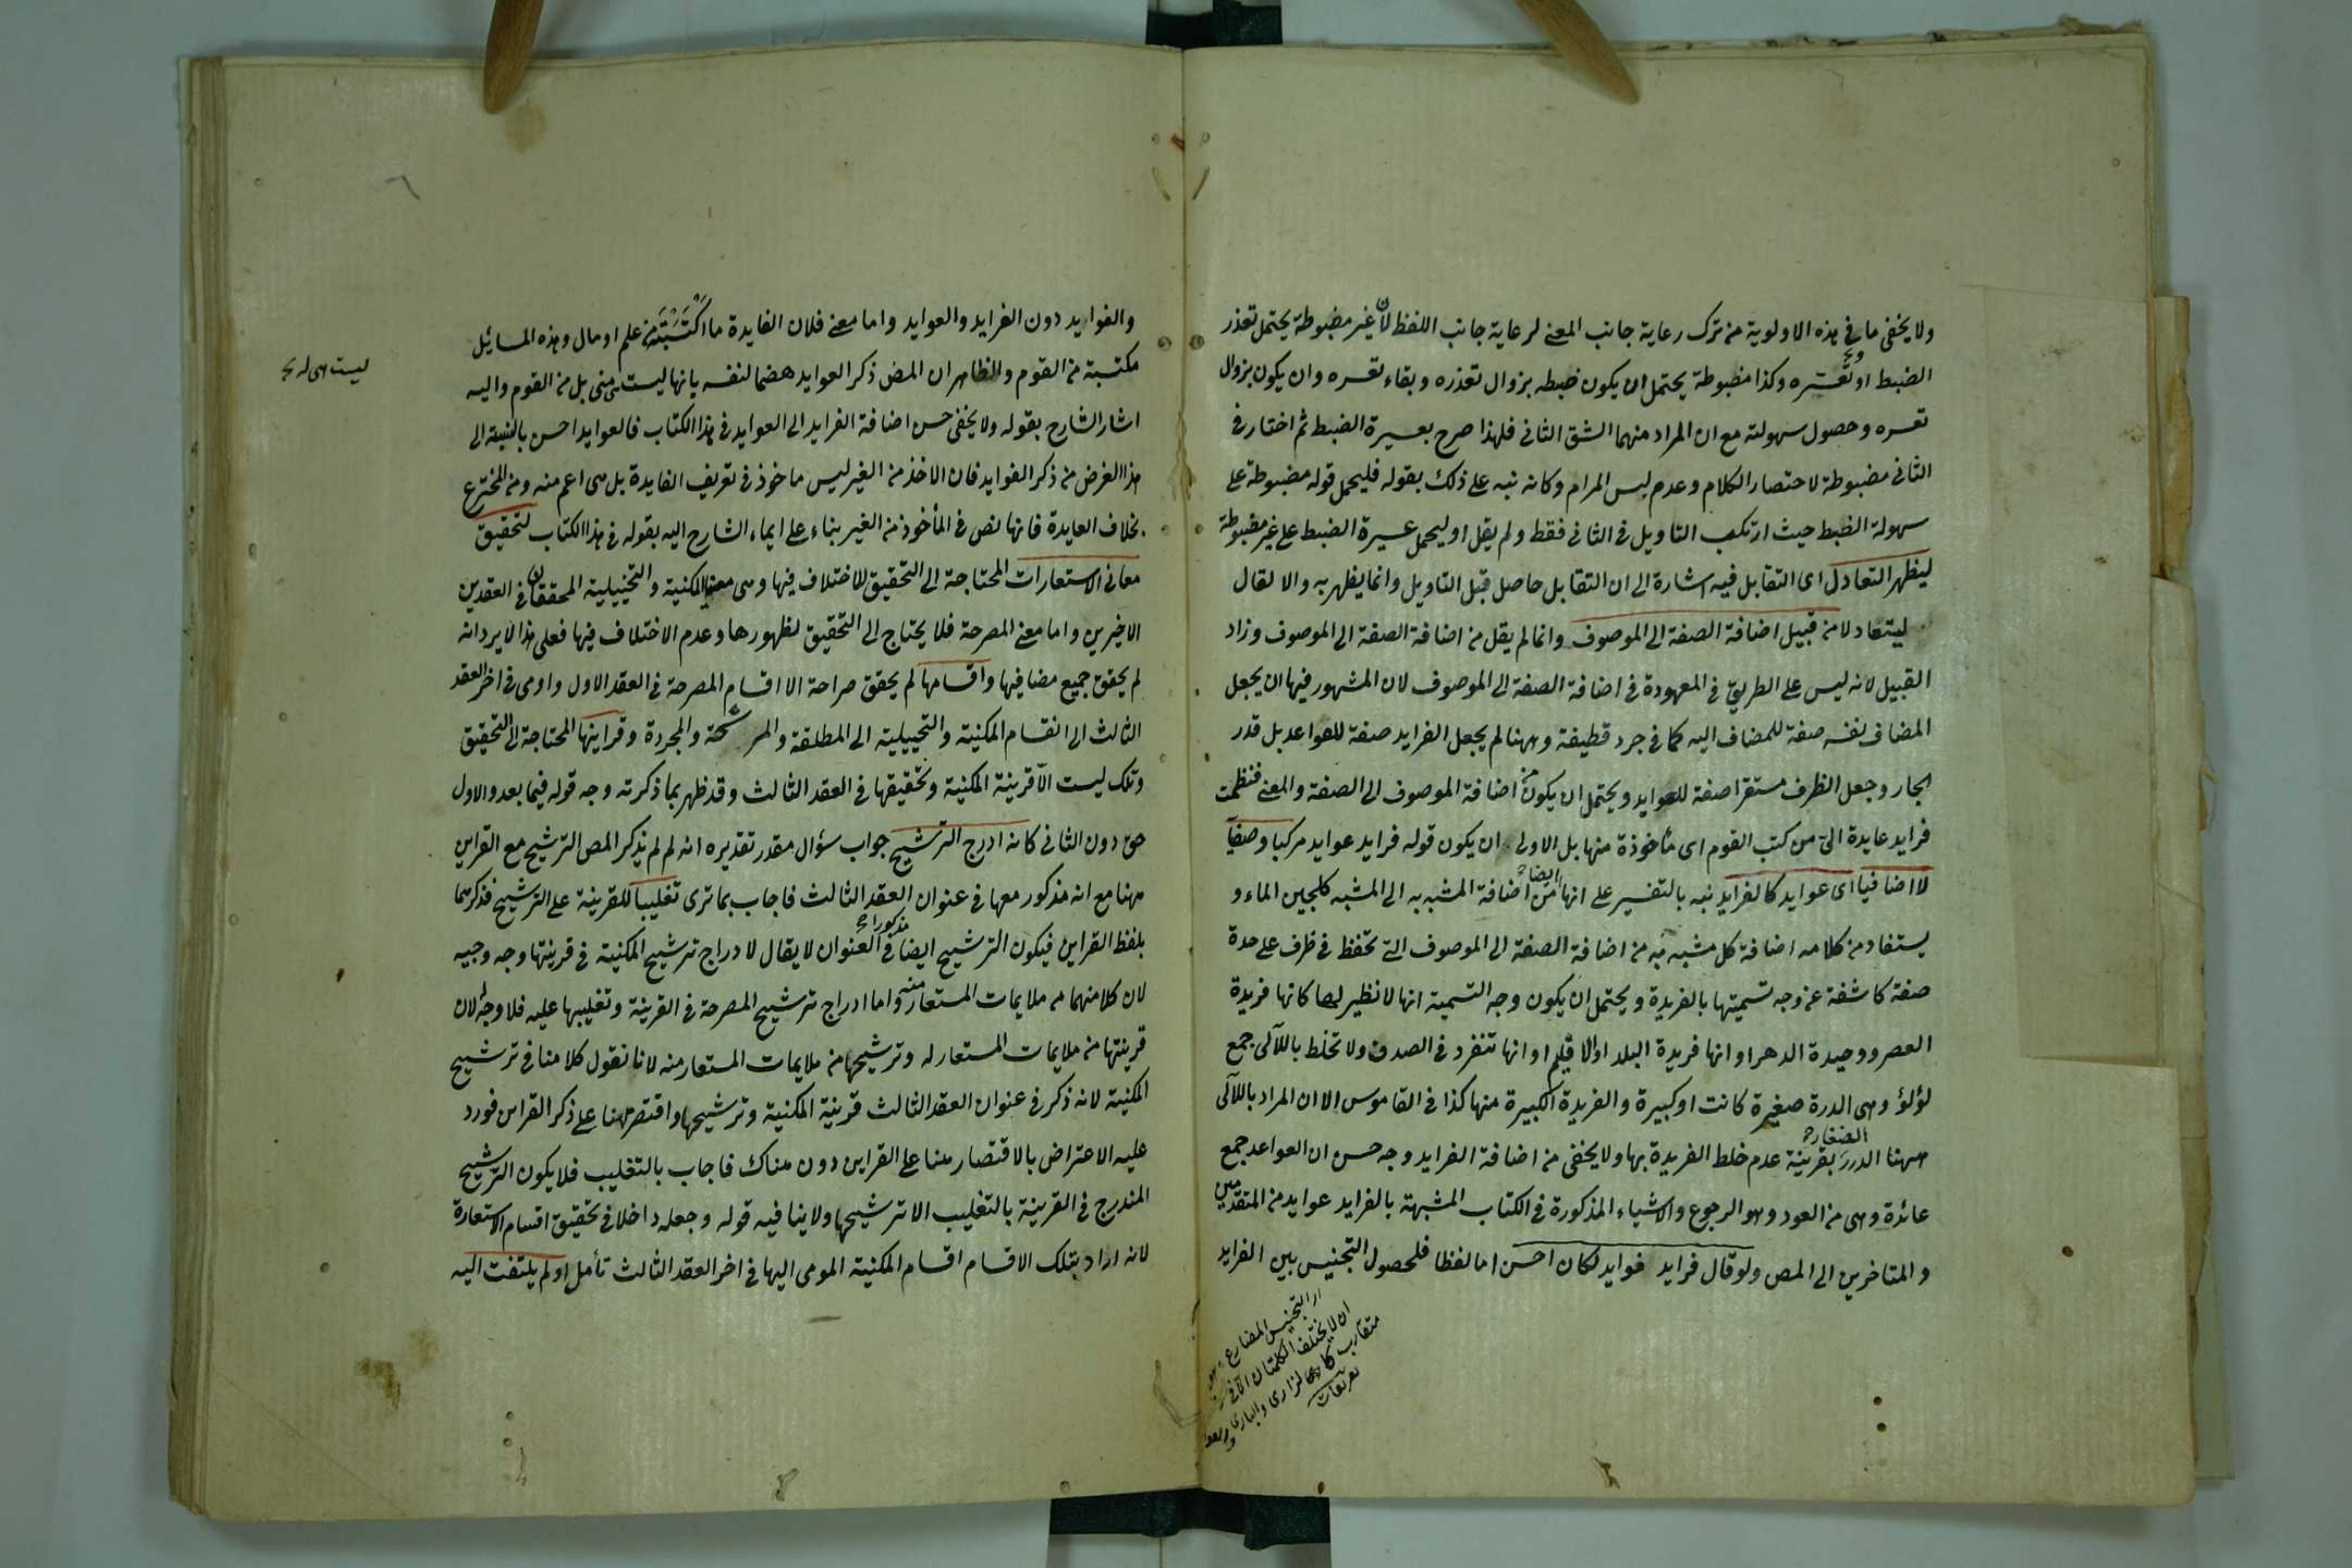 ولا يخفى ما في هذه الاولوية من ترك رعاية جانب المعنى لرعاية جانب اللفظ لان غير مضبوطة يحتمل تعذر
الضبط او تعسره وكذا مضبوطة يحتمل ان يكون ضبطه بزوال تعذره وبقاء تعسره وان يكون بزوال
تعسره وحصول سهولته مع ان المراد منهما الشق الثاني فلهذا صرح بعسيرة الضبط ثم اختار في
الثاني مضبوطة لاختصار الكلام وعدم لبس المرام وكانه نبه على ذلك بقوله فليحمل قوله مضبوطة على
سهولة الضبط حيث ارتكب التاويل في الثاني فقط ولم يقل او ليحمل عسيرة الضبط على غير مضبوطة
ليظهر التعادل اى التقابل فيه اشارة الى ان التقابل حاصل قبل التاويل وانما يظهر به والا لقال
ليتعادلا من قبيل اضافة الصفة الى الموصوف وانما لم يقل من اضافة الصفة الى الموصوف وزاد
القبيل لانه ليس على الطريق في المعهودة في اضافة الصفة الى الموصوف لان المشهور فيها ان يجعل
المضاف بنفسه صفة للمضاف اليه كما في جرد قطيفة وههنا لم يجعل الفرايد صفة للقواعد بل قدر
الجار وجعل الظرف مستقرا صفة للعوايد ويحتمل ان يكون من اضافة الموصوف الى الصفة والمعنى فنظمت
فرايد عايدة الى من كتب القوم اى مأخوذة منها بل الاولى ان يكون قوله فرايد عوايد مركبا وصفيا
لا اضافيا اى عوايد كالفرايد نبه بالتفسير على انها ايضا من اضافة المشبه به الى المشبه كلجين الماء و
يستفاد من كلامه اضافة كل مشبه به من اضافة الصفة الى الموصوف التي تحفظ في ظرف على حدة
صفة كاشفة عن وجه تسميتها بالفريدة ويحتمل ان يكون وجه التسمية انها لا نظير لها كانها فريدة
العصر ووحيدة الدهر او انها فريدة البلد او الاقليم او انها تنفرد في الصدف ولا تخلط باللآلى جمع
لؤلؤ وهى الدرة صغيرة كانت او كبيرة والفريدة الكبيرة منها كذا في القاموس الا ان المراد باللآلى
ههنا الدرر الصغار بقرينة عدم خلط الفريدة بها ولا يخفى من اضافة الفرايد وجه حسن ان العواعد جمع
عائدة وهى من العود وهو الرجوع والاشياء المذكورة في الكتاب المشبهة بالفرايد عوايد من المتقدمين
والمتاخرين الى المص ولو قال فرايد فوايد لكان احسن اما لفظا فلحصول التجنيس بين الفرايد
التجنيس المضارع
ان لا يختلف الكلمتان الا في
متقارب كالدارى والبارى
تعريفات
والفوايد دون الفرايد والعوايد واما معنى فلان الفايدة ما اكتسبته من علم او مال وهذه المسايل
مكتسبة من القوم والظاهر ان المص ذكر العوايد هضما لنفسه بانها ليست منى بل من القوم واليه
ليست هى له
اشار الشارح بقوله ولا يخفى حسن اضافة الفرايد الى العوايد في هذا الكتاب فالعوايد احسن بالنسبة الى
هذا الغرض من ذكر الفوايد فان الاخذ من الغير ليس ماخوذ في تعريف الفايدة بل هى اعم منه ومن المخترع
بخلاف العايدة فانها نص في المأخوذ من الغير بناء على ايماء الشارح اليه بقوله في هذا الكتاب لتحقيق
معانى الاستعارات المحتاجة الى التحقيق للاختلاف فيها وهى معنى المكنية والتخييلية المحققان في العقدين
الاخيرين واما معنى المصرحة فلا يحتاج الى التحقيق لظهورها وعدم الاختلاف فيها فعلى هذا لا يرد انه
لم يحقق جميع مضافيها واقسامها لم يحقق صراحة الا اقسام المصرحة في العقد الاول واومى في اخر العقد
الثالث الى انقسام المكنية والتخييلية الى المطلقة والمرشحة والمجردة وقراينها المحتاجة الى التحقيق
وتلك ليست الا قرينة المكنية وتحقيقها في العقد الثالث وقد ظهر بما ذكرته وجه قوله فيما بعد والاول
حق دون الثاني كانه ادرج الترشيح جواب سؤال مقدر تقديره انه لم لم يذكر المص الترشيح مع القراين
ههنا مع انه مذكور معها في عنوان العقد الثالث فاجاب بما ترى تغليبا للقرينة على الترشيح فذكرهما
بلفظ القراين فيكون الترشيح ايضا مذكورا في العنوان لا يقال لادراج ترشيح المكنية في قرينتها وجه وجيه
لان كلا منهما من ملايمات المستعار منه واما ادراج ترشيح المصرحة في القرينة وتغليبها عليه فلا وجه له لان
قرينتها من ملايمات المستعار له وترشيحها من ملايمات المستعار منه لانا نقول كلامنا في ترشيح
المكنية لانه ذكر في عنوان العقد الثالث قرينة المكنية وترشيحها واقتصر ههنا على ذكر القراين فورد
عليه الاعتراض بالاقتصار هنا على القراين دون هناك فاجاب بالتغليب فلا يكون الترشيح
المندرج في القرينة بالتغليب الا ترشيحها ولا ينافيه قوله وجعله داخلا في تحقيق اقسام الاستعارة
لانه اراد بتلك الاقسام اقسام المكنية المومى اليها في اخر العقد الثالث تأمل او لم يلتفت اليه